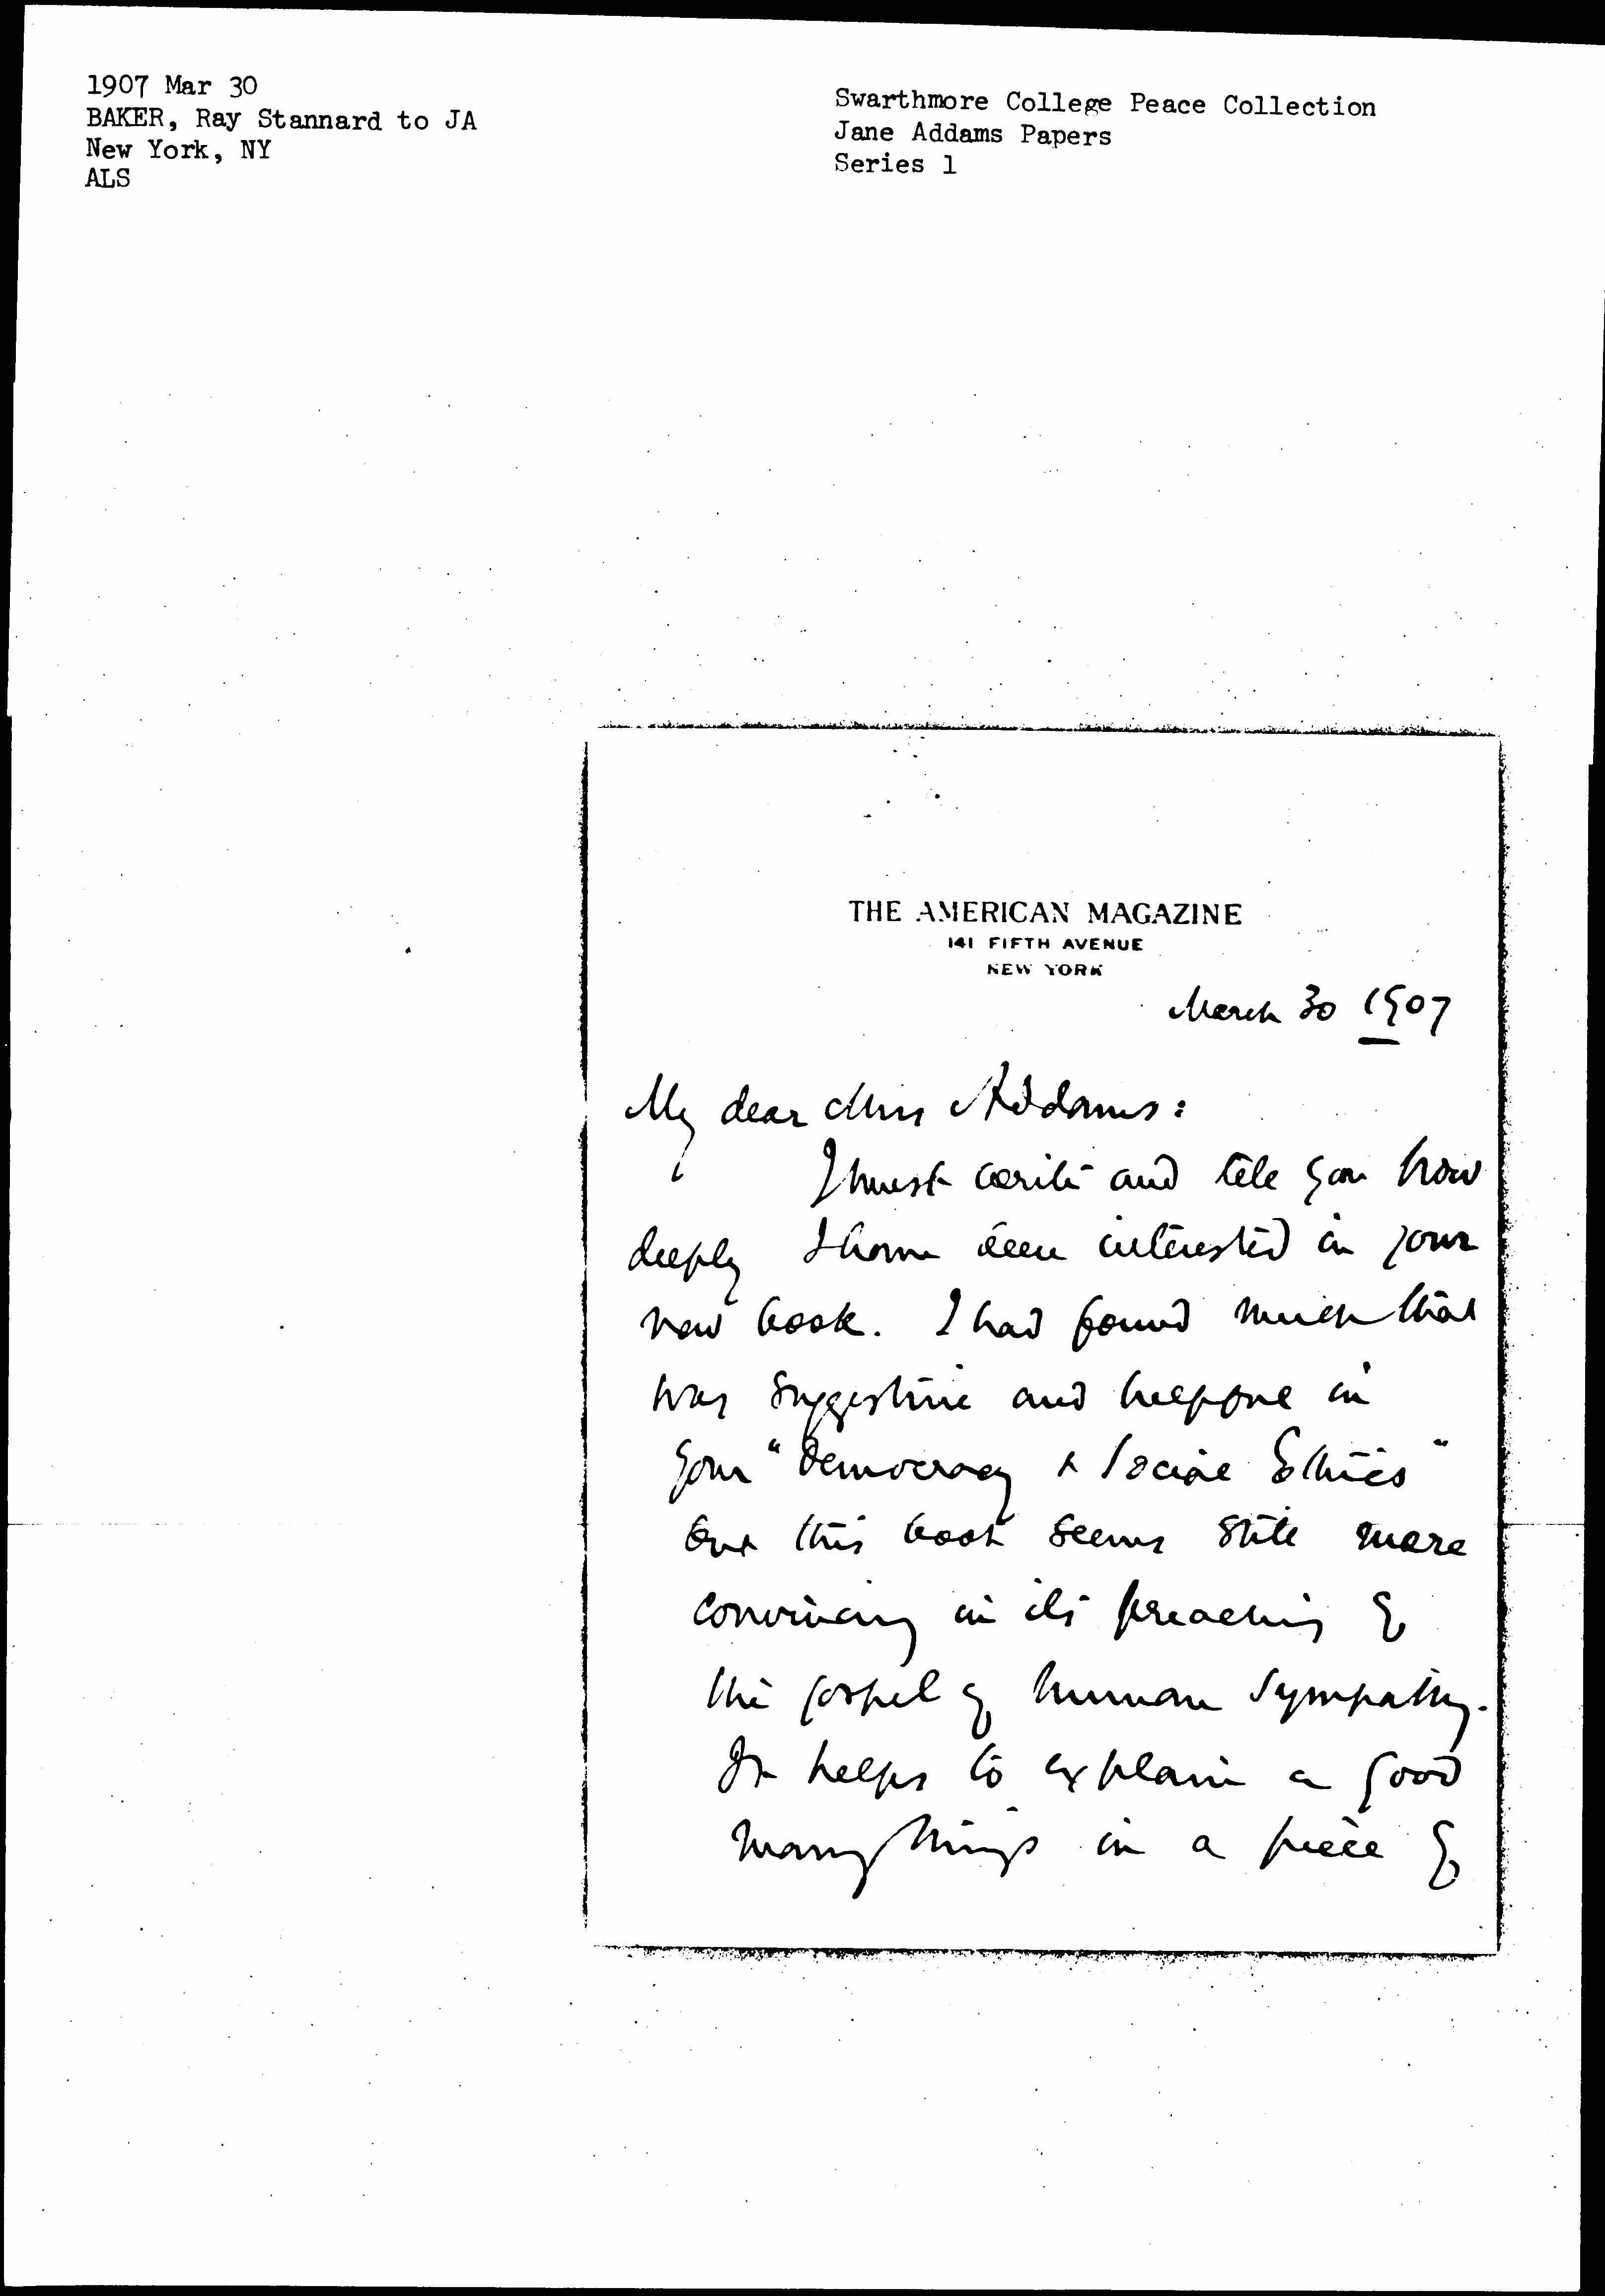 1907 Mar 30
BAKER, Ray Stannard to JA
New York, NY
ALS
Swarthmore College Peace Collection
Jane Addams Papers
Series 1
THE AMERICAN MAGAZINE
141 FIFTH AVENUE
NEW YORK
March 30 1907
My dear Miss Addams:
I must write and tell you how
deeply I have been interested in your
new book. I had found much that
was suggestive and helpful in
your "Democracy & Social Ethics"
but this book seems still more
convincing in its preaching of
the gospel of human sympathy.
It helps to explain a good
many things in a piece of